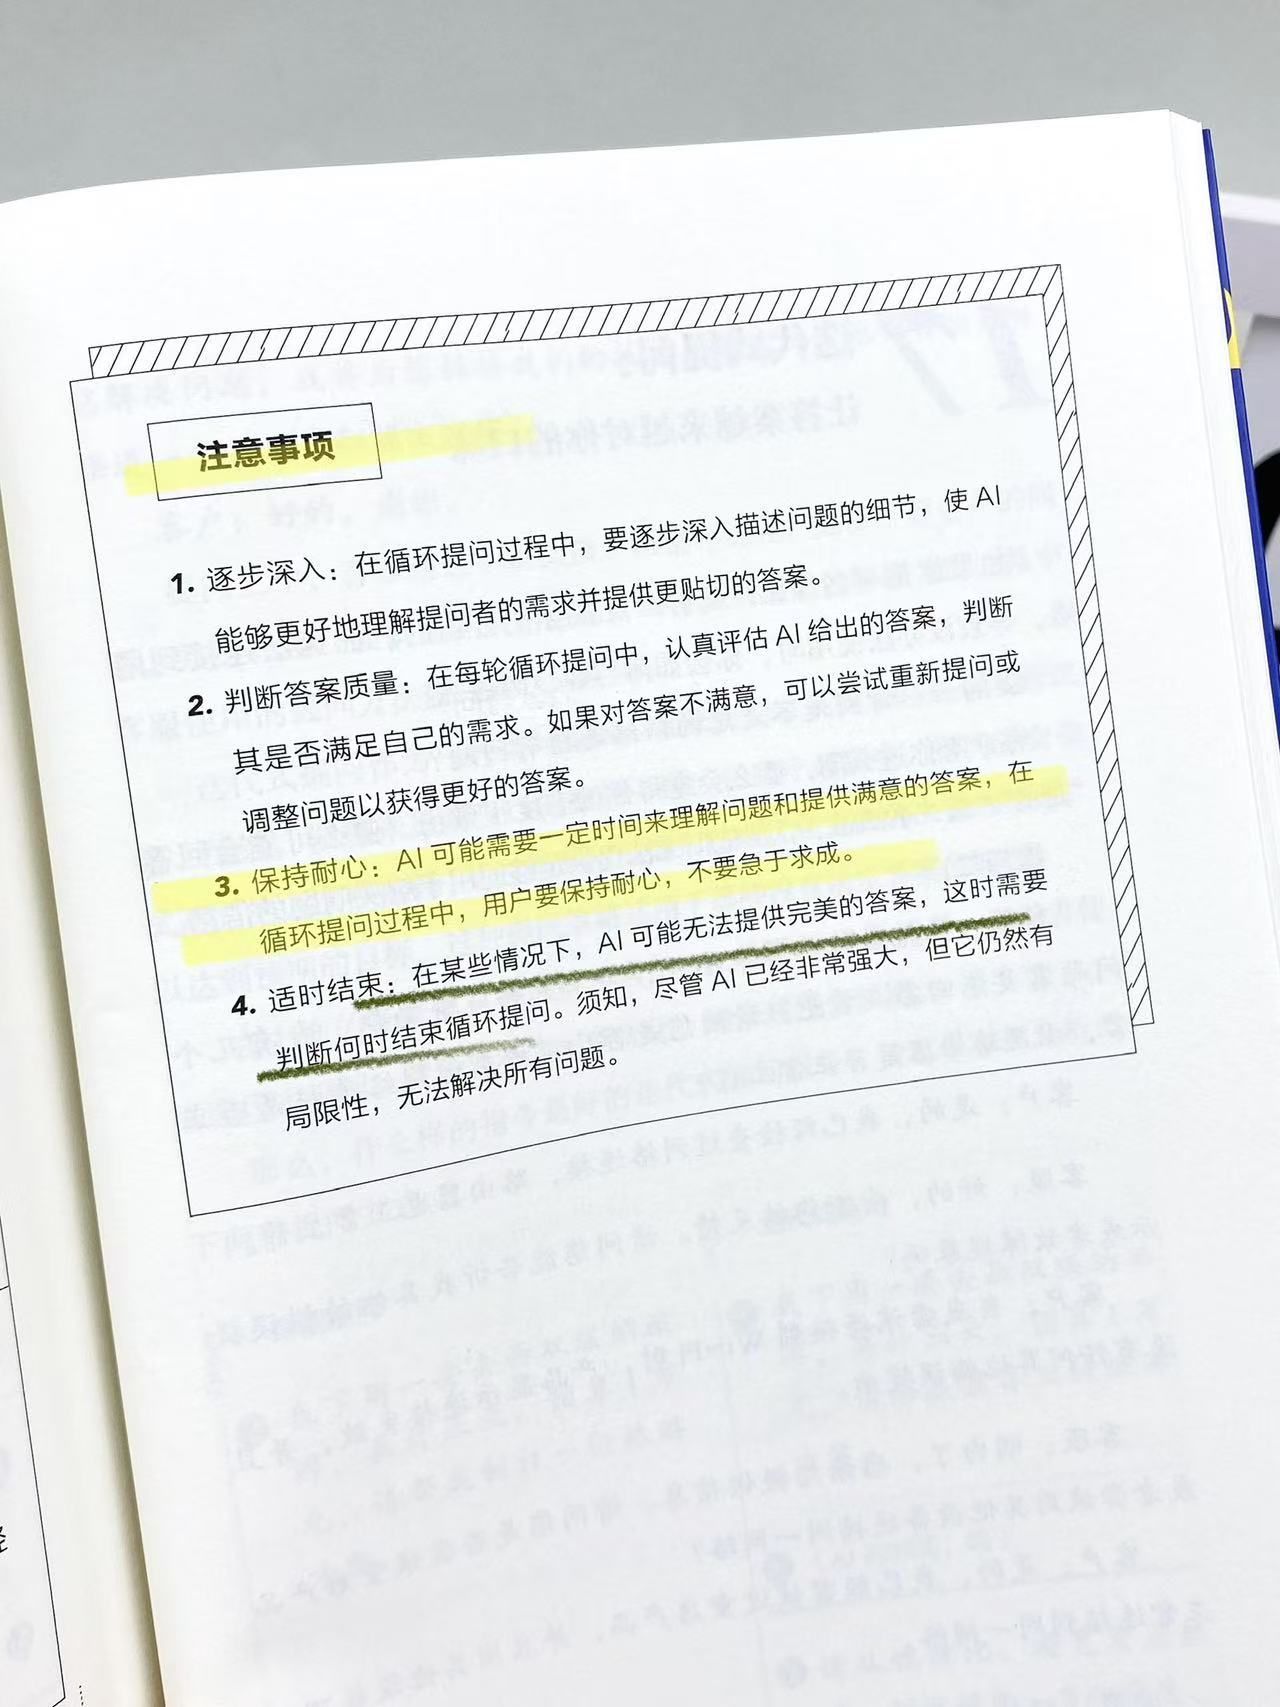 注意事项
1. 逐步深入：在循环提问过程中，要逐步深入描述问题的细节，使 AI
能够更好地理解提问者的需求并提供更贴切的答案。
2. 判断答案质量：在每轮循环提问中，认真评估 AI 给出的答案，判断
其是否满足自己的需求。如果对答案不满意，可以尝试重新提问或
调整问题以获得更好的答案。
3. 保持耐心：AI 可能需要一定时间来理解问题和提供满意的答案，在
循环提问过程中，用户要保持耐心，不要急于求成。
4. 适时结束：在某些情况下，AI 可能无法提供完美的答案，这时需要
判断何时结束循环提问。须知，尽管 AI 已经非常强大，但它仍然有
局限性，无法解决所有问题。